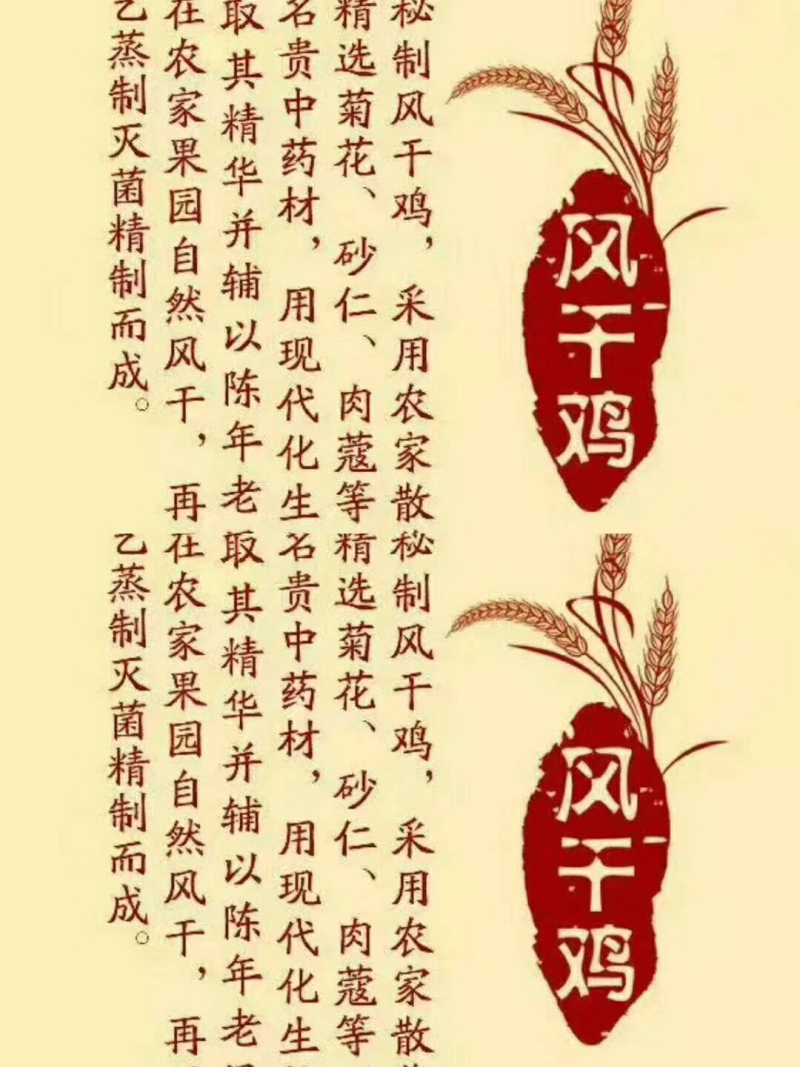 风干鸡
秘制风干鸡，采用农家散
精选菊花、砂仁、肉蔻等
名贵中药材，用现代化生
取其精华并辅以陈年老
在农家果园自然风干，再
蒸制灭菌精制而成。
风干鸡
秘制风干鸡，采用农家散
精选菊花、砂仁、肉蔻等
名贵中药材，用现代化生
取其精华并辅以陈年老
在农家果园自然风干，再
蒸制灭菌精制而成。